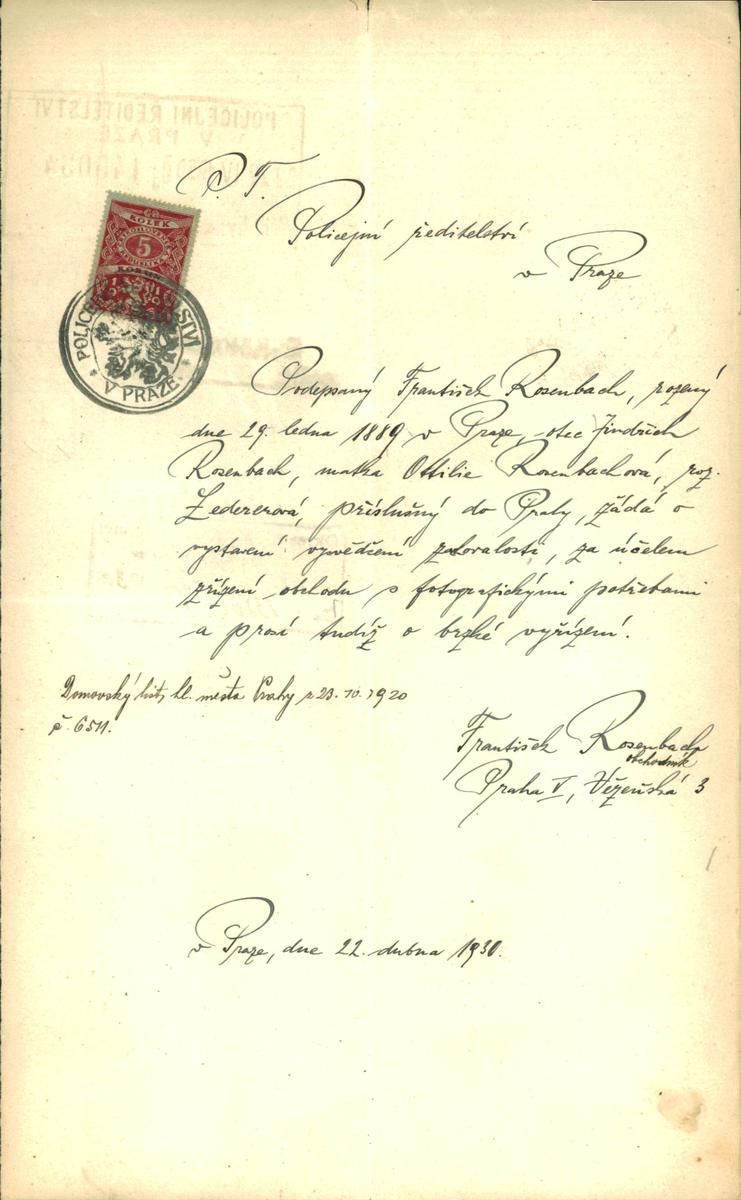 P. T.
Policejní ředitelství
v Praze
KOLEK
ČESKOSLOVENSKÁ
REPUBLIKA
5
KORUN
POLICEJNÍ ŘEDITELSTVÍ
* V PRAZE *
Podepsaný František Rosenbach, rozený
dne 29. ledna 1889 v Praze, otec Jindřich
Rosenbach, matka Ottilie Rosenbachová, roz.
Ledererová, příslušný do Prahy, žádá o
vystavení vysvědčení zachovalosti, za účelem
zřízení obchodu s fotografickými potřebami
a prosí tudíž o brzké vyřízení.
Domovský list hl. města Prahy z 23. 10. 1920
č. 6511.
František Rosenbach
obchodník
Praha V, Vězeňská 3
v Praze, dne 22. dubna 1930.